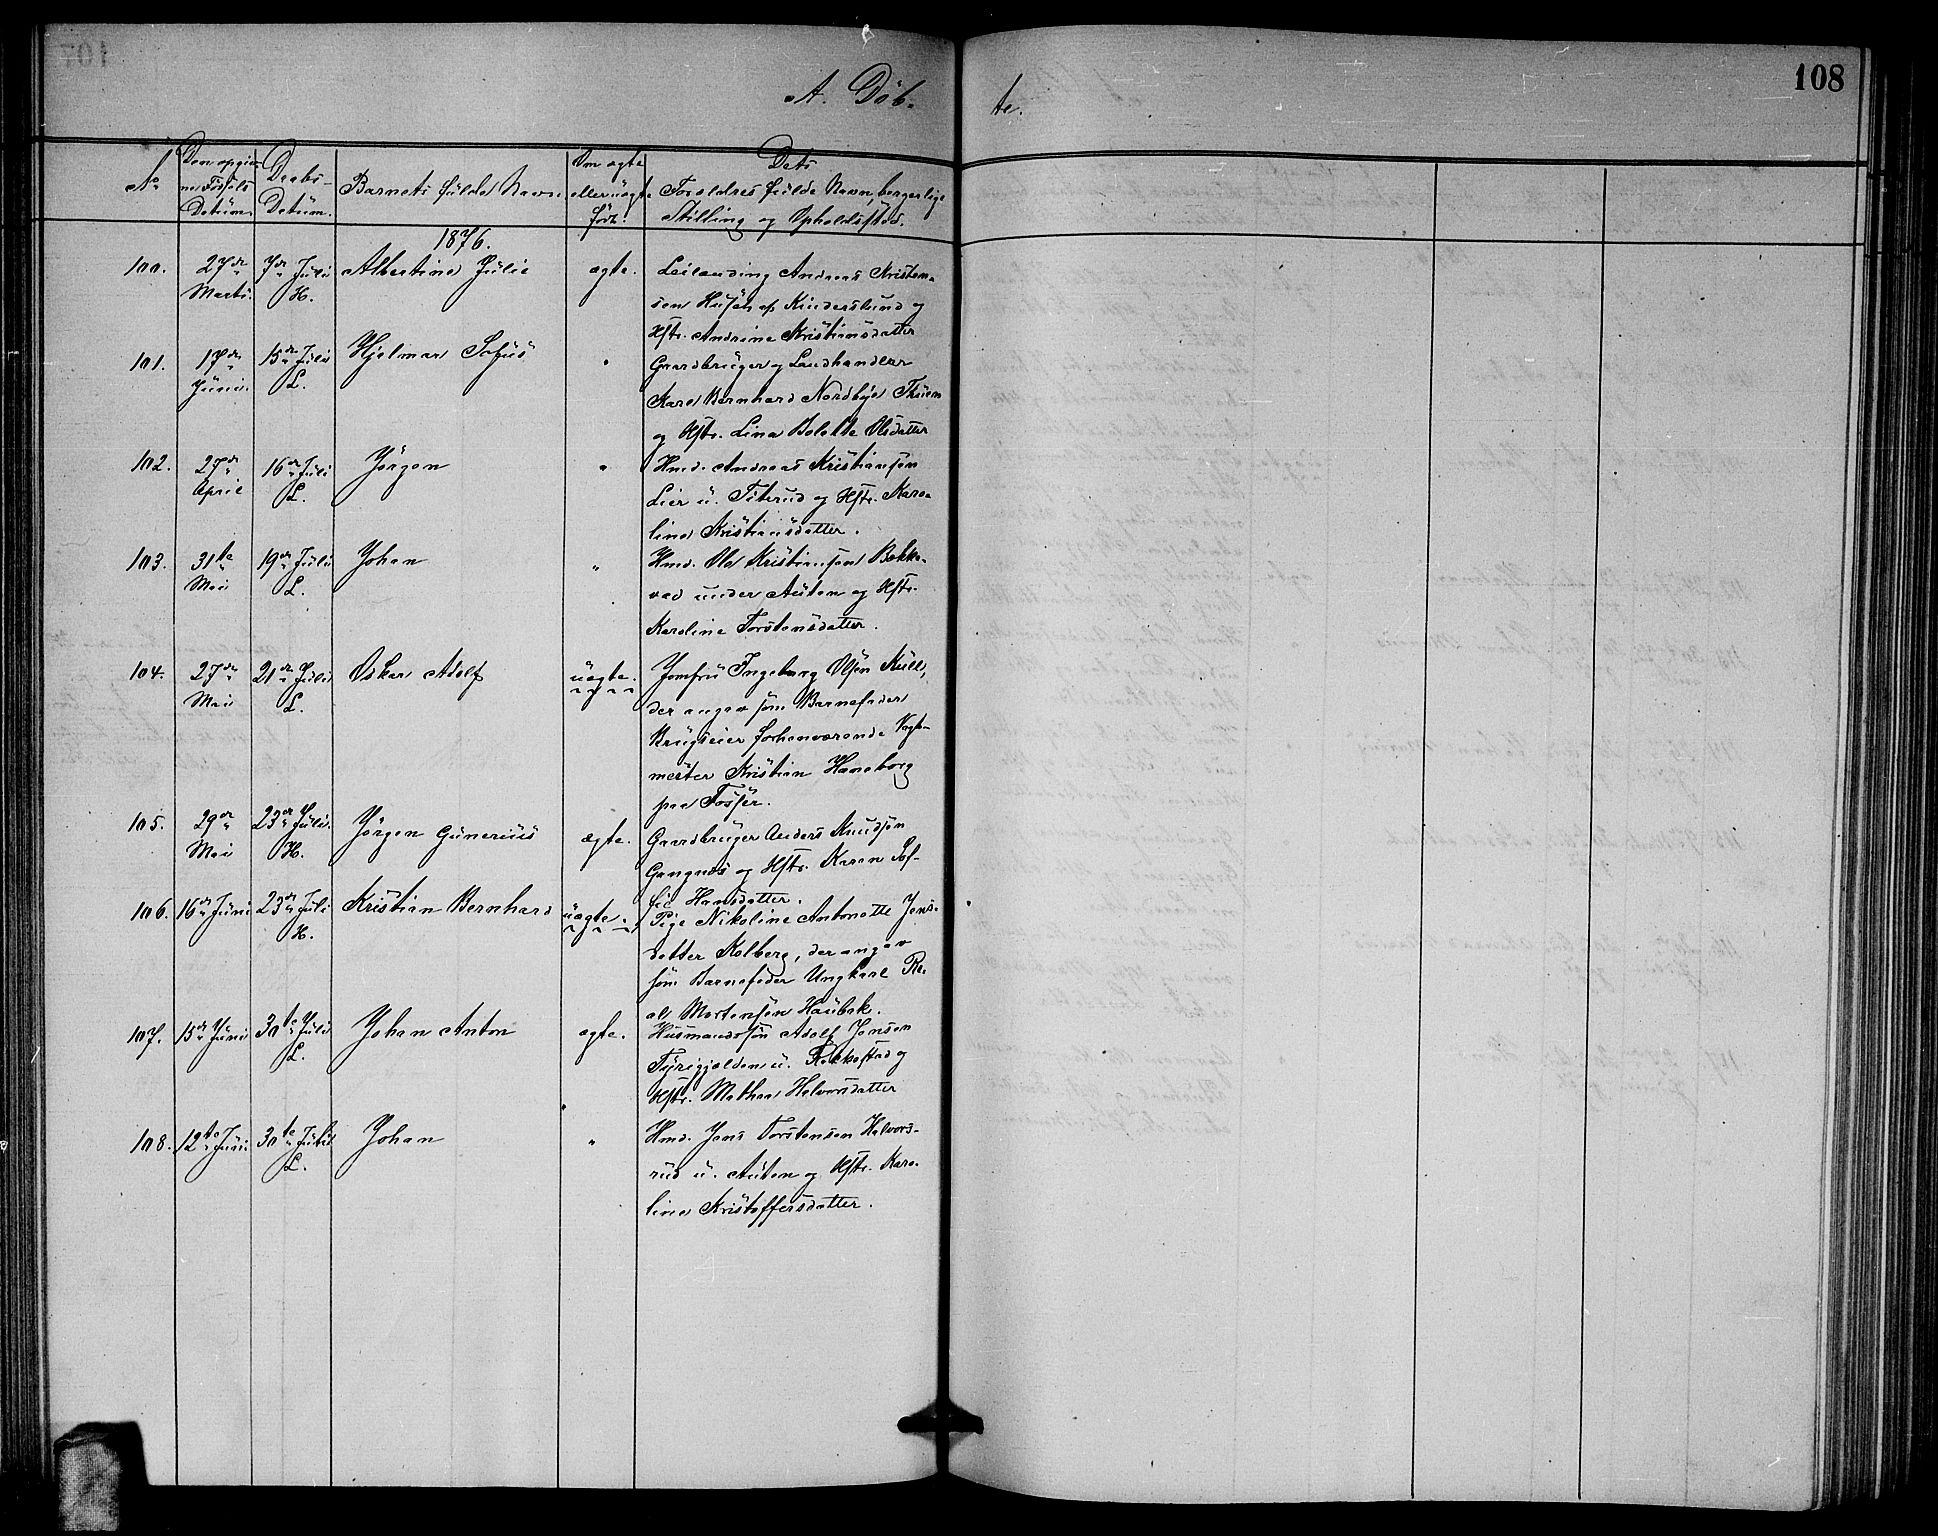 108
A. Döb-
te.
No
Den opgiv-
ne Födsels
Datum.
Daabs-
Datum.
Barnets fulde Navn
Om ægte
eller uægte
födt.
Dets
Forældres fulde Navn, borgerlige
Stilling og Opholdssted.
1876.
100. 27de Marts. 7de Juli H. Albertine Julie ægte. Leilænding Andreas Kristen-
sen Husön af Kinderslund og
Hstr. Andrine Kristiansdatter
101. 17de Juni. 15de Juli L. Hjelmar Sofus " Gaardbruger og Landhandler
Karl Bernhard Nordbye
og Hstr. Lina Bolette Olsdatter
102. 27de April 16de Juli L. Jörgen " Hmd. Andreas Kristiansen
Lier u. Titerud og Hstr. Karo-
line Kristiansdatter.
103. 31te Mai 19de Juli L. Johan " Hmd. Ole Kristiansen Bekke-
vad under Auten og Hstr.
Karoline Torstensdatter.
104. 27de Mai 21de Juli L. Oskar Adolf uægte. Jomfru Ingeborg Olsen Kull,
der angav som Barnefader
Brugseier forhenværende Vagt-
mester Kristian Haneborg
paa Fosser.
105. 29de Mai 23de Juli H. Jörgen Gunerius ægte. Gaardbruger Anders Knudsen
Gangnæs og Hstr. Karen Sof-
fie Hansdatter.
106. 16de Juni 23de Juli H. Kristian Bernhard uægte. Pige Nikoline Antonette Jens-
datter Kolberg, der angav
som Barnefader Ungkarl
Martensen Haübæk.
107. 15de Juni 30te Juli L. Johan Anton ægte. Husmandssön Adolf Jensen
Tyrigjelden u. Rakkestad og
Hstr. Mathea Halvorsdatter
108. 12te Juni. 30te Juli L. Johan " Hmd. Jens Torstensen Halvors-
rud u. Auten og Hstr. Karo-
line Kristoffersdatter.